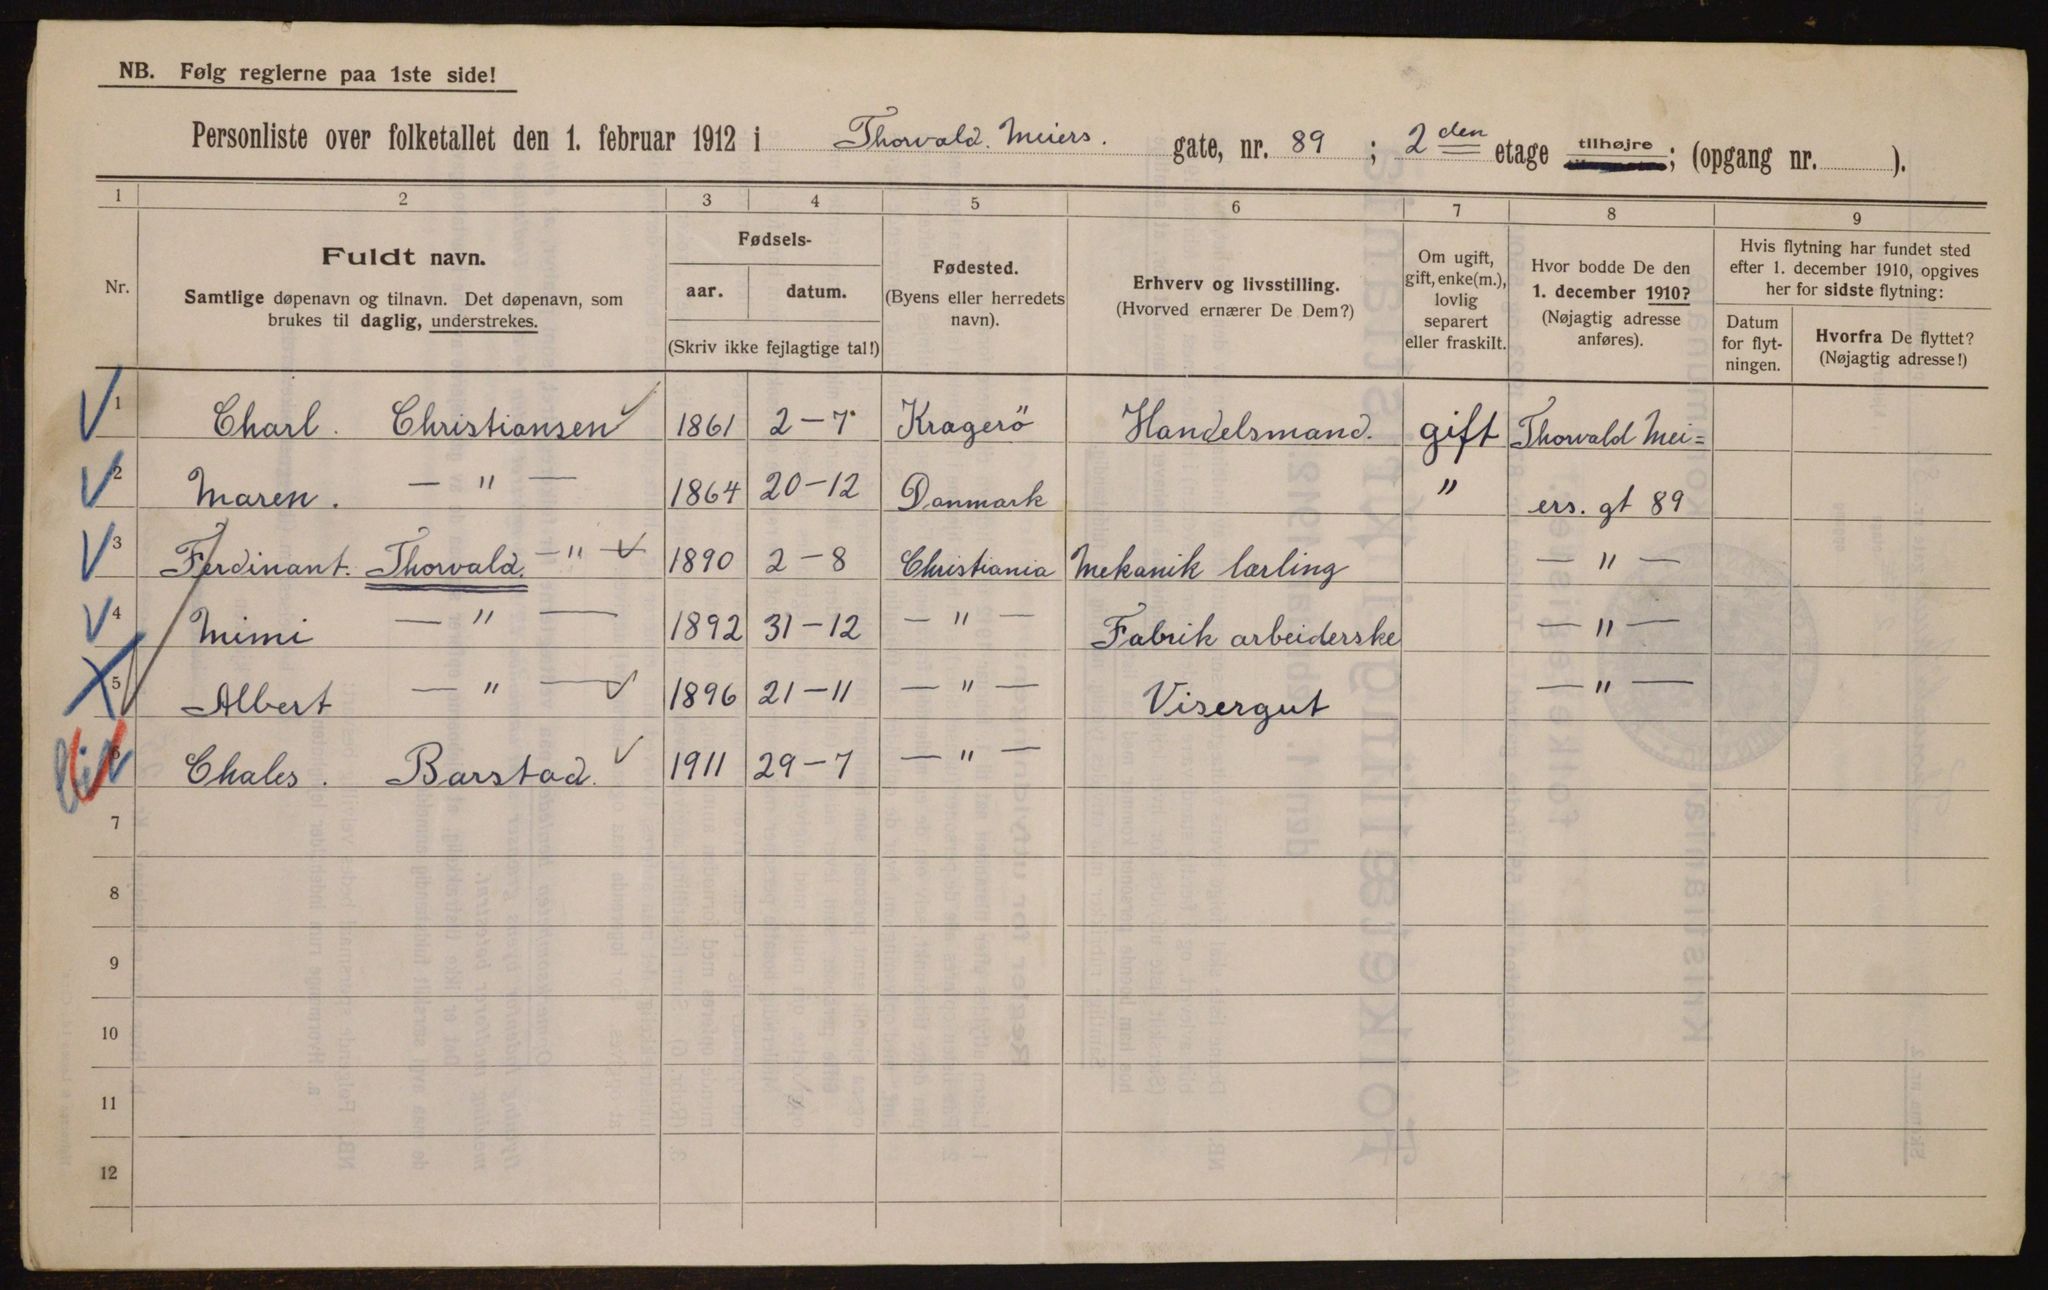 NB. Følg reglerne paa 1ste side!
Personliste over folketallet den 1. februar 1912 i Thorvald. Meiers. gate, nr. 89 ; 2den etage tilhøjre ; (opgang nr. ).
1 2 3 4 5 6 7 8 9
Nr.
Fuldt navn.
Samtlige døpenavn og tilnavn. Det døpenavn, som
brukes til daglig, understrekes.
Fødsels-
aar. datum.
(Skriv ikke fejlagtige tal!)
Fødested.
(Byens eller herredets
navn).
Erhverv og livsstilling.
(Hvorved ernærer De Dem?)
Om ugift,
gift, enke(m.),
lovlig
separert
eller fraskilt.
Hvor bodde De den
1. december 1910?
(Nøjagtig adresse
anføres).
Hvis flytning har fundet sted
efter 1. december 1910, opgives
her for sidste flytning:
Datum
for flyt-
ningen.
Hvorfra De flyttet?
(Nøjagtig adresse!)
1 Charl. Christiansen 1861 2-7 Kragerö Handelsmand. gift Thorvald Mei=
2 Maren. — " — 1864 20-12 Danmark " ers. gt 89
3 Ferdinant. Thorvald. — " — 1890 2-8 Christiania Mekanik lærling — " —
4 Mimi — " — 1892 31-12 — " — Fabrik arbeiderske — " —
5 Albert — " — 1896 21-11 — " — Visergut — " —
6 Chales. Barstad. 1911 29-7 — " —
7
8
9
10
11
12